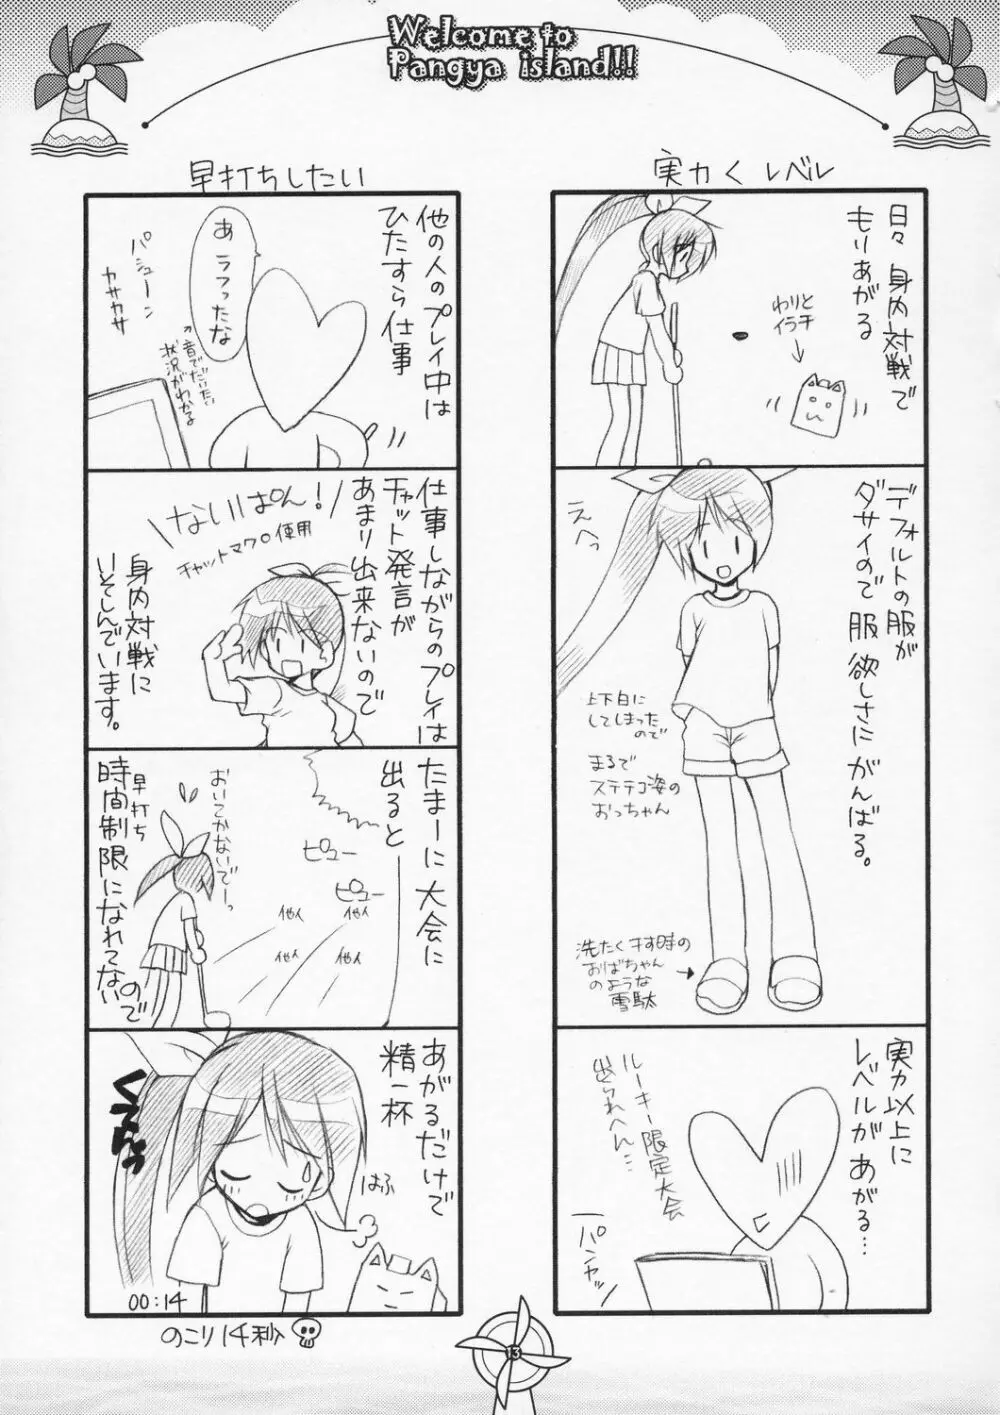 Welcome to
Pangya island!!
実力くレベル
日々 身内対戦で
もりあがる
わりと
イラチ
デフォルトの服が
ダサイので 服 欲しさに がんばる。
えへっ
上下白に
してしまった
ので
まるで
ステテコ姿の
おっちゃん
洗たく干す時の
おばちゃん
のような
雪駄
実力以上に
レベルが あがる…
ルーキー限定大会
出られへん…
パンヤッ
早打ちしたい
他の人のプレイ中は
ひたすら仕事
あ ラフったな
パシューン
カサカサ
音でだいたい
状況がわかる
仕事しながらのプレイは
チャット発言が
あまり出来ないので
ないぱん!
チャットマクロ使用
身内対戦に
いそしんでいます。
たまーに大会に
出ると
ピュー
ピュー
他人
他人
他人
他人
おいてかないでーっ
早打ち
時間制限になれてない
ので
あがるだけで
精一杯
はふ
00:14
のこり14秒
13